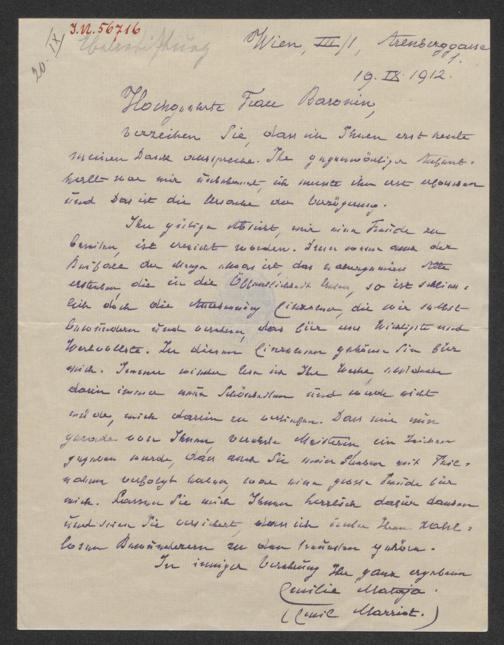 J.N. 56716
20. IX
Wien, III/1, Arenberggasse
19. IX. 1912.
Hochgeehrte Frau Baronin,
verzeihen Sie, dass ich Ihnen erst heute
meinen Dank ausspreche. Ihr gegenwärtiger Aufent-
halt war mir unbekannt, ich musste ihn erst erforschen
und das ist die Ursache der Verzögerung.
Ihre gütige Absicht, mir eine Freude zu
bereiten, ist erreicht worden. Denn wenn auch der
Beifall der Menge etwas ist, das
die in die Öffentlichkeit treten, so ist schliess-
lich doch die Anerkennung Einzelner, die wir selbst
bewundern und verehren, das für uns Wichtigste und
Wertvollste. Zu diesen Einzelnen gehören Sie für
mich. Immer wieder lese ich Ihre Werke, entdecke
darin immer neue Schönheiten und werde nicht
müde, mich darein zu vertiefen. Dass mir nun
gerade von Ihnen, verehrte Meisterin, ein Zeichen
gegeben wurde, dass auch Sie mein Streben mit Teil-
nahme verfolgt haben, war eine grosse Freude für
mich. Lassen Sie mich Ihnen herzlich dafür danken
und seien Sie versichert, dass ich unter Ihren zahl-
losen Bewunderern zu den treuesten gehöre.
In inniger Verehrung Ihre ganz ergebene
Emilie Mataja.
(Emil Marriot.)